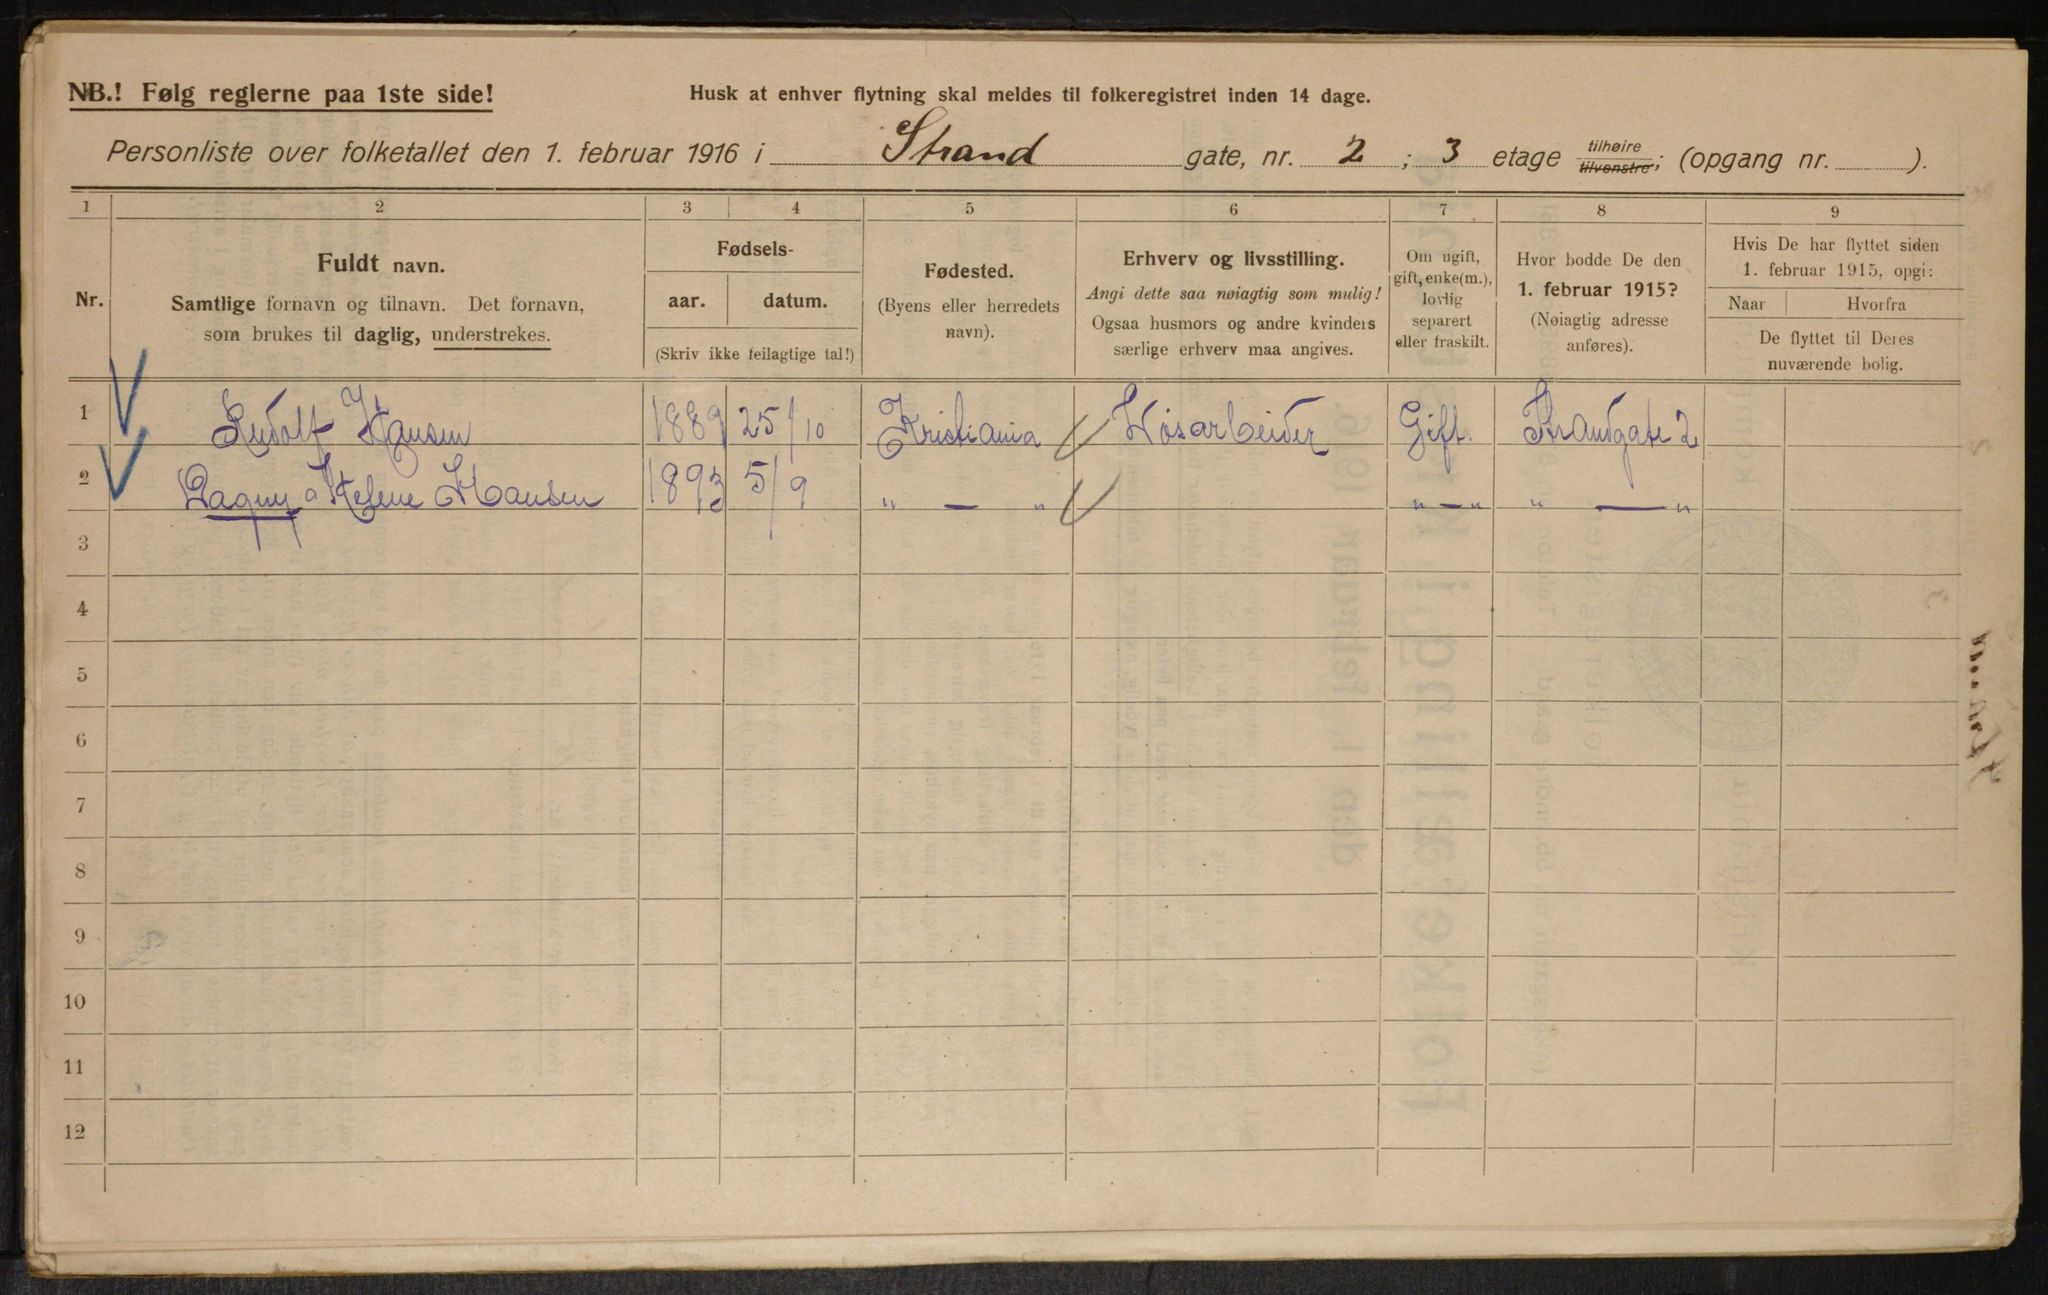 NB.! Følg reglerne paa 1ste side!
Husk at enhver flytning skal meldes til folkeregistret inden 14 dage.
Personliste over folketallet den 1. februar 1916 i Strand gate, nr. 2 ; 3 etage tilhøire tilvenstre; (opgang nr. ).
1 2 3 4 5 6 7 8 9
Nr.
Fuldt navn.
Samtlige fornavn og tilnavn. Det fornavn,
som brukes til daglig, understrekes.
Fødsels-
aar. datum.
(Skriv ikke feilagtige tal!)
Fødested.
(Byens eller herredets
navn).
Erhverv og livsstilling.
Angi dette saa nøiagtig som mulig!
Ogsaa husmors og andre kvinders
særlige erhverv maa angives.
Om ugift,
gift, enke(m.),
lovlig
separert
eller fraskilt.
Hvor bodde De den
1. februar 1915?
(Nøiagtig adresse
anføres).
Hvis De har flyttet siden
1. februar 1915, opgi:
Naar Hvorfra
De flyttet til Deres
nuværende bolig.
1 Rudolf Hansen 1889 25/10 Kristiania Løsarbeider Gift. Strandgate 2
2 Dagny Helene Hansen 1893 5/9 " — " " — " " — "
3
4
5
6
7
8
9
10
11
12